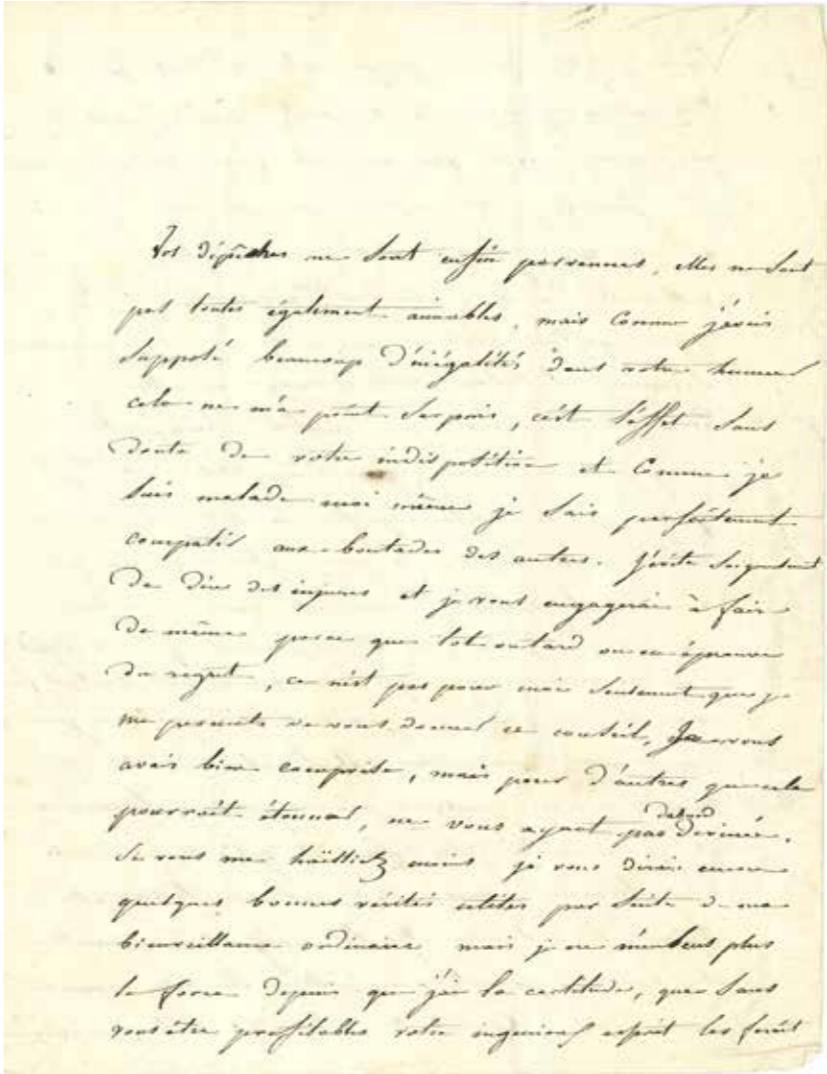 Vos dépêches me sont enfin parvenues, elles ne sont
pas toutes également aimables, mais comme j'avais
supposé beaucoup d'inégalités dans votre humeur
cela ne m'a point surpris, c'est l'effet sans
doute de votre indisposition et comme je
suis malade moi même je sais parfaitement
compatir aux boutades des autres. J'évite soigneusement
de dire des injures et je vous engagerai à faire
de même parce que tot ou tard on en éprouve
du regret, ce n'est pas pour moi seulement que je
me permets de vous donner ce conseil, Je vous
avais bien comprise, mais pour d'autres que cela
pourroit étonner, ne vous ayant pas dabord devinée.
Si vous me haïssiez moins je vous dirais encore
quelques bonnes vérités utiles par suite de ma
bienveillance ordinaire mais je ne m'en sens plus
la force depuis que j'ai la certitude, que sans
vous être profitables votre ingénieux esprit les feroit